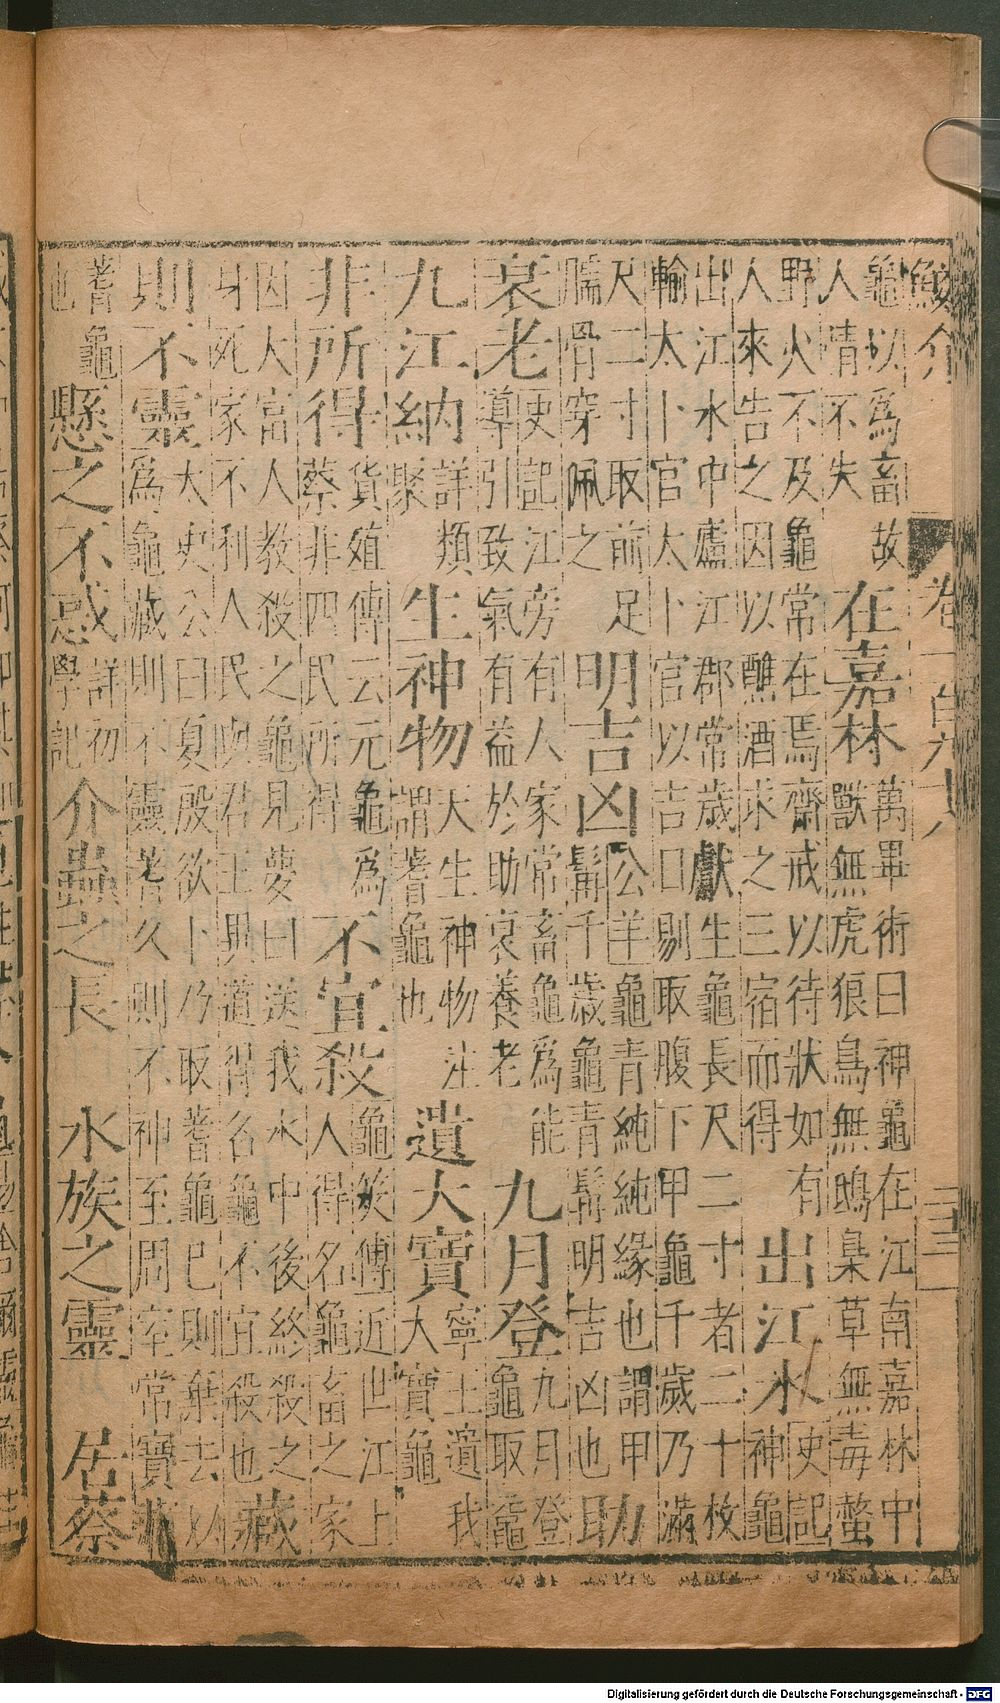 鮫介 卷一百九十八 三三
龜以爲畜故人情不失 在嘉林 萬畢術曰神龜在江南嘉林中獸無虎狼鳥無鴟梟草無毒螫
野火不及龜常在焉齋戒以待狀如有人來告之因以醮酒求之三宿而得 出江水 史記神龜
出江水中廬江郡常歲獻生龜長尺二寸者二十枚輸太卜官太卜官以吉日剔取腹下甲龜千歲乃滿
尺二寸取前足臑骨穿佩之 明吉凶 公羊龜青純純緣也謂甲髯千歲龜青髯明吉凶也 助
衰老 史記江旁有人家常畜龜爲能導引致氣有益於助衰養老 九月登 九月登龜取龜
九江納 詳類聚 生神物 天生神物注謂蓍龜也 遺大寶 寧王遺我大寶龜
非所得 貨殖傳云元龜爲蔡非四民所得 不宜殺 龜筴傳近世江上人得名龜畜之家
因大富人教殺之龜見夢曰送我水中後終殺之身死家不利人民與君王異道得名龜不宜殺也 藏
則不靈 大史公曰夏殷欲卜乃取蓍龜已則棄去以爲龜藏則不靈蓍久則不神至周室常寶藏
蓍龜也 懸之不惑 詳初學記 介蟲之長 水族之靈 居蔡
Digitalisierung gefördert durch die Deutsche Forschungsgemeinschaft - DFG